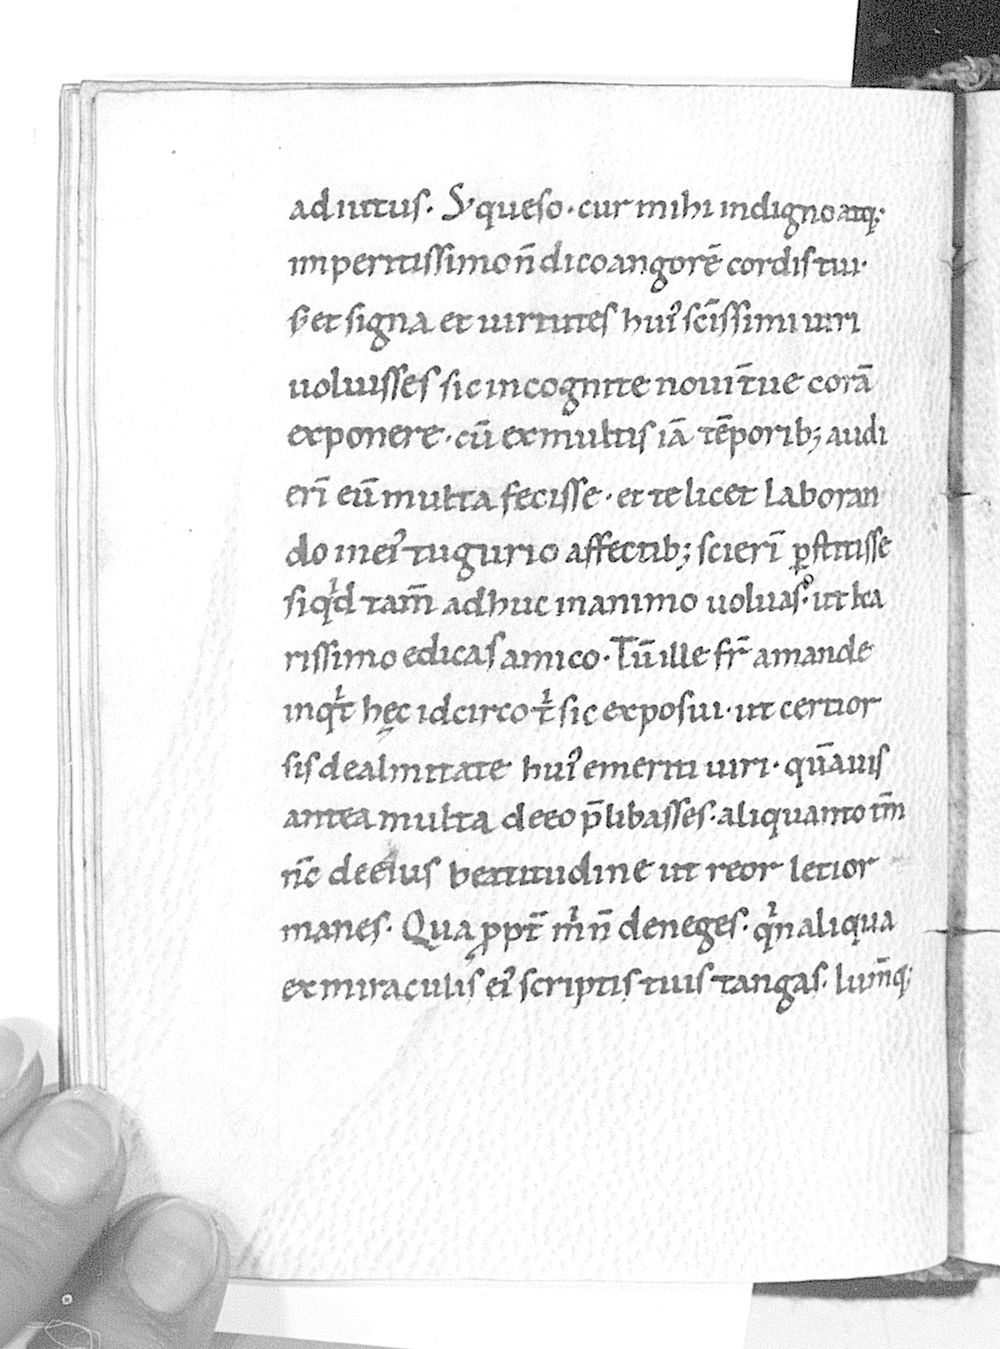 adiutus. Sꝫ queso. cur mihi indigno atq;
imperitissimo n̄ dico angorē cordis tui.
Sꝫ et signa et uirtutes hui᷒ scīssimi uiri
uoluisses sic incognite nouit̄ tue corā
exponere. cū ex multis iā tēporib; audi
erī eū multa fecisse. et te licet laboran
do mei᷒ tugurio affectib; scierī ꝑstitisse
siq̇d tam̄ adhuc in animo uoluas. ut ka
rissimo edicas amico. Tū ille fr̄ amande
inqͥt hęc idcirco tͥ sic exposui. ut certior
sis de almitate hui᷒ emeriti uiri. qūauis
antea multa de eo p̄libasses. aliquanto tm̄
nc̄ de eius beatitudine ut reor letior
manes. Qua ꝓpt̄ mͥ n̄ deneges. qͥn aliqua
ex miraculis ei᷒ scriptis tuis tangas. lum̄q;